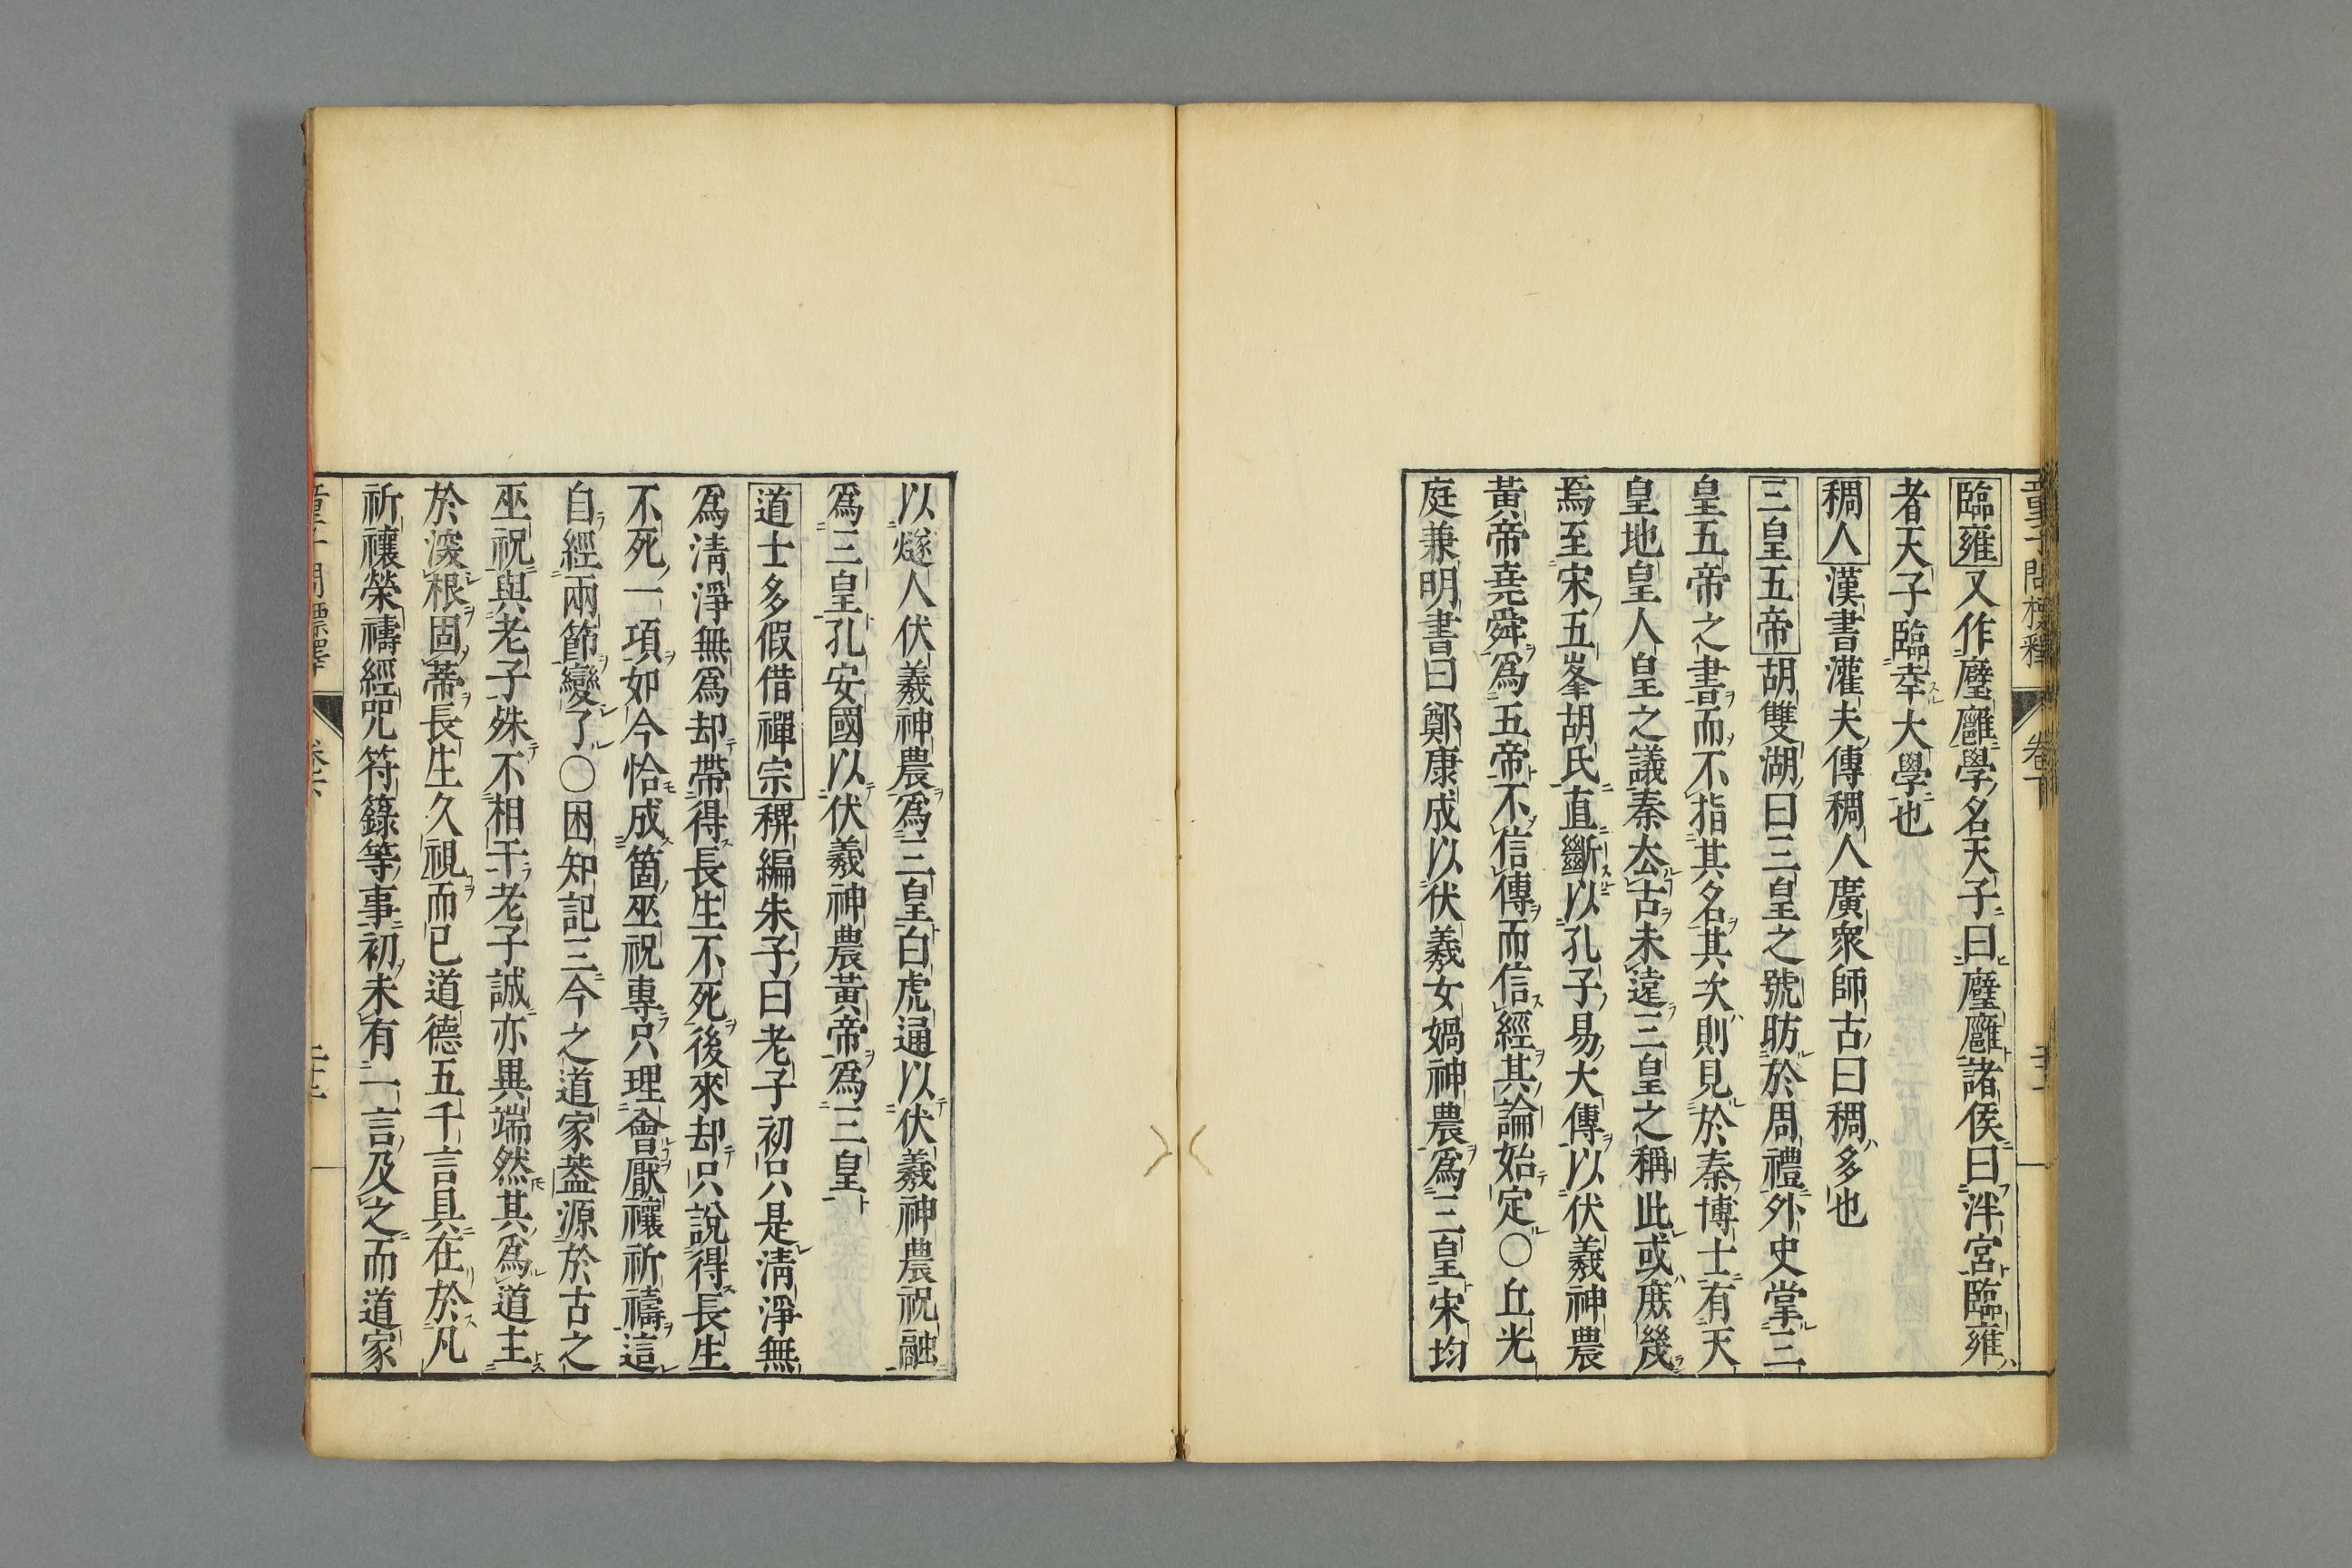 童子問標釋 卷下
臨雍又作廱廱學名天子曰廱廱諸侯曰泮宮臨雍
者天子臨幸大學也
稠人漢書灌夫傳稠人廣衆師古曰稠多也
三皇五帝胡雙湖曰三皇之號昉於周禮外史掌三
皇五帝之書而不指其名其次則見於秦博士有天
皇地皇人皇之議秦去古未遠三皇之稱此或庶幾
焉至宋五峯胡氏直斷以孔子易大傳以伏羲神農
黃帝堯舜爲五帝不信傳而信經其論始定〇丘光
庭兼明書曰鄭康成以伏羲女媧神農爲三皇宋均
以燧人伏羲神農爲三皇白虎通以伏羲神農祝融
爲三皇孔安國以伏羲神農黃帝爲三皇
道士多假借禪宗稗編朱子曰老子初只是淸淨無
爲淸淨無爲却帶得長生不死後來却只說得長生
不死一項如今恰成箇巫祝專只理會厭禳祈禱這
自經兩節變了〇困知記三今之道家蓋源於古之
巫祝與老子殊不相干老子誠亦異端然其爲道主
於深根固蒂長生久視而已道德五千言具在於凡
祈禳禜禱經呪符籙等事初未有一言及之而道家
童子問標釋